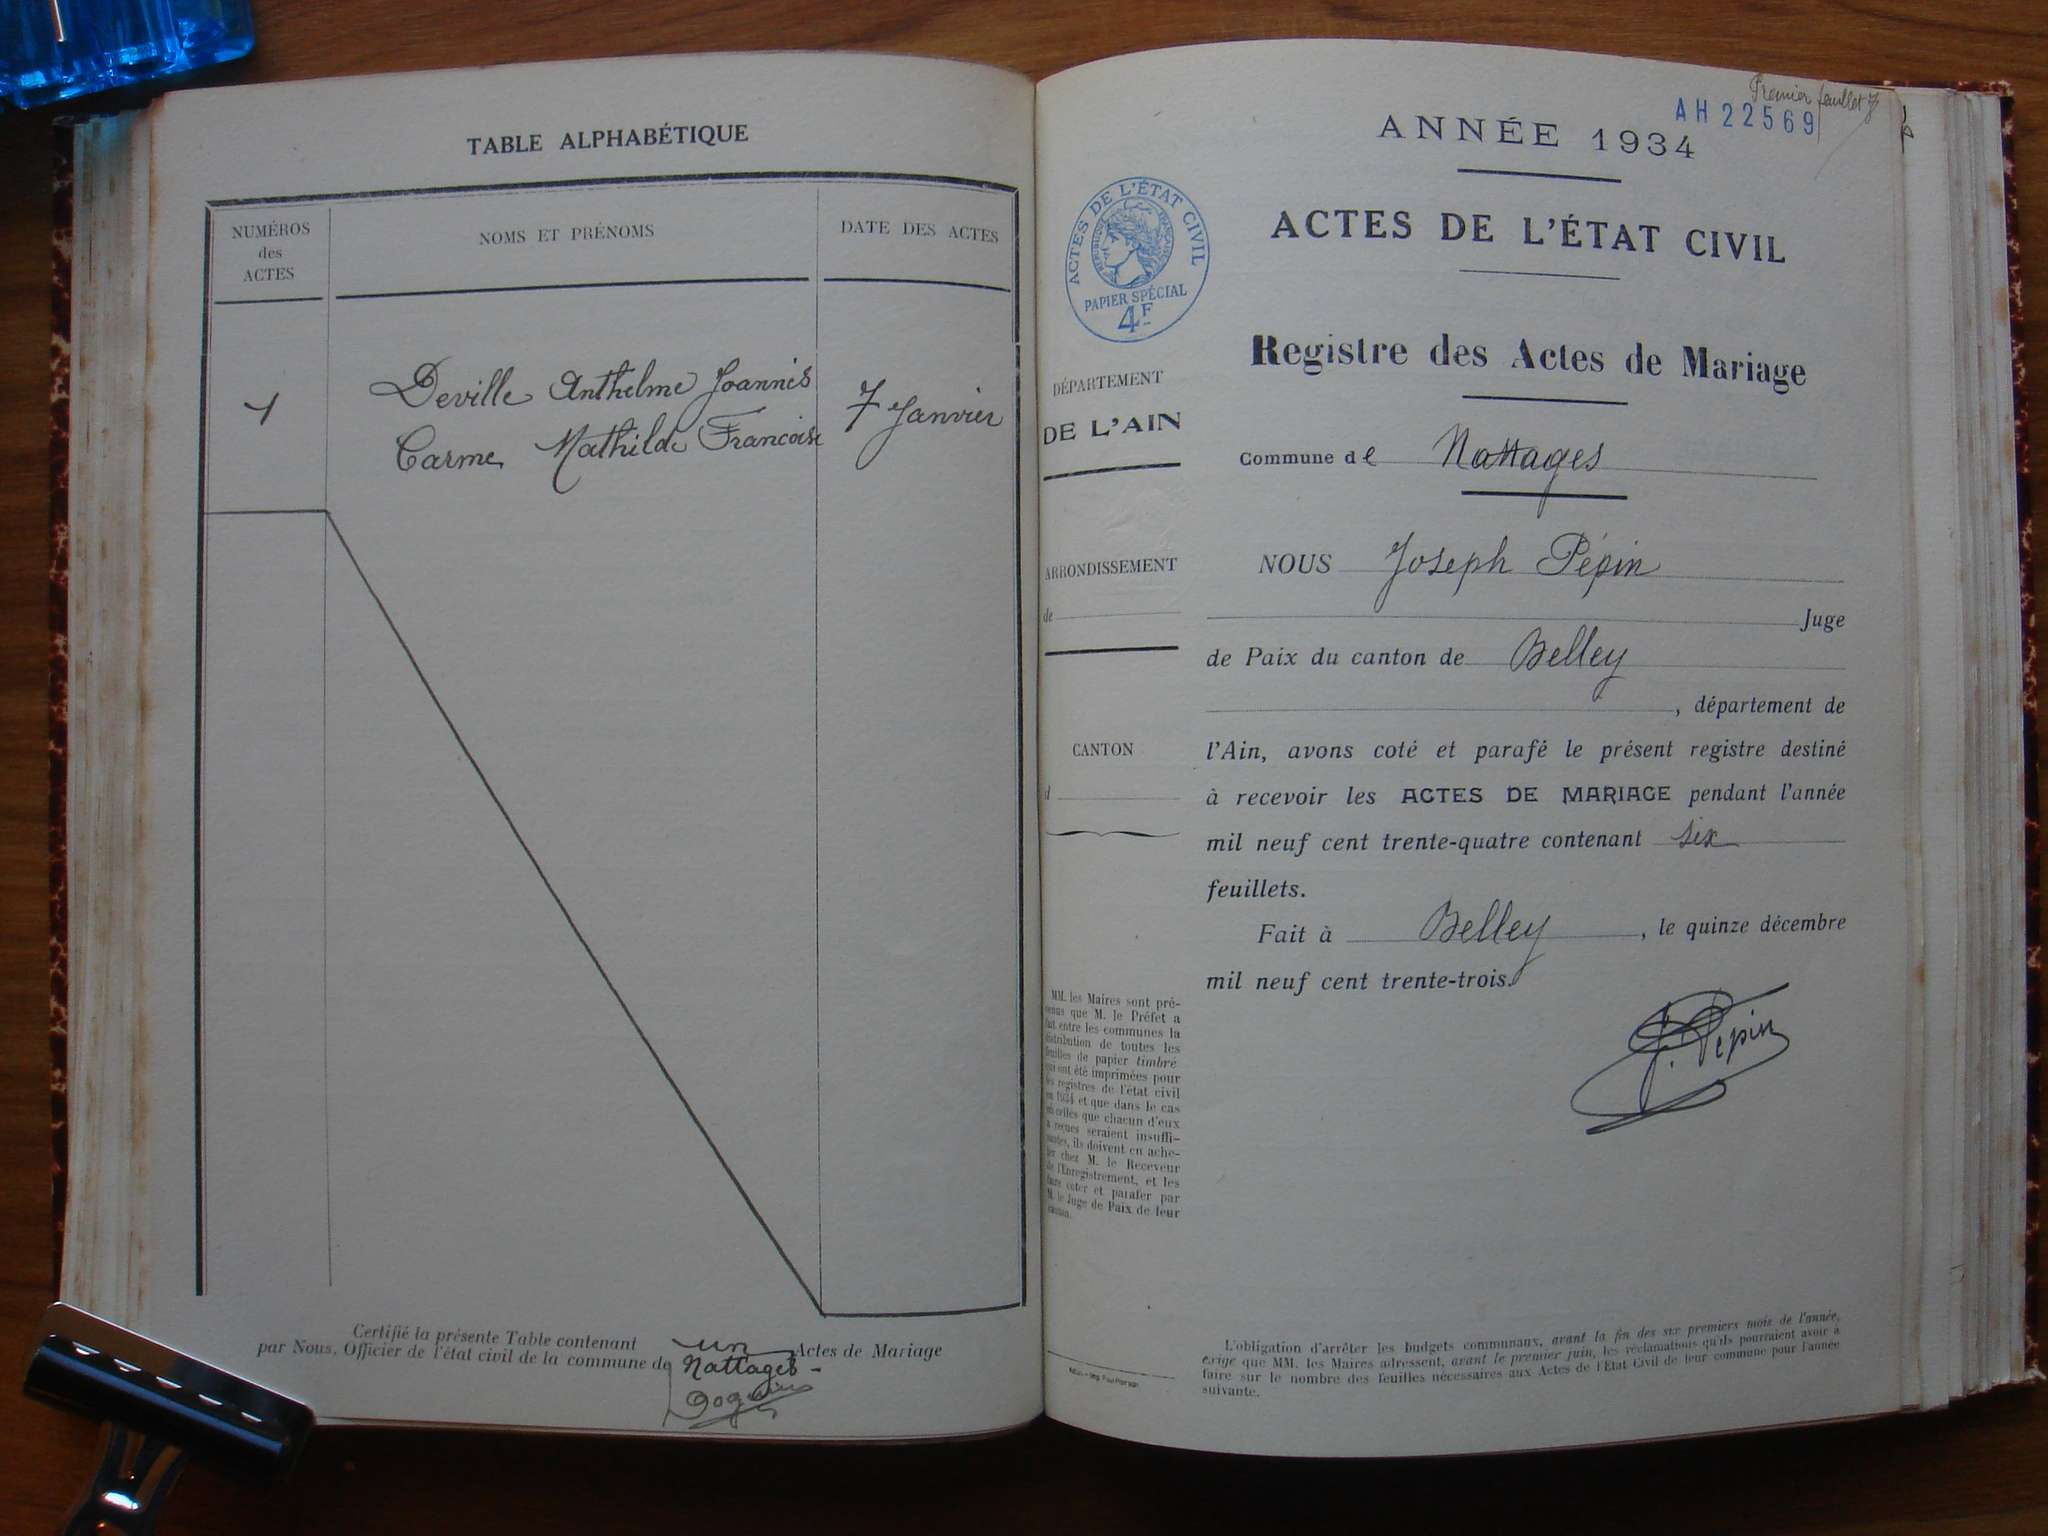 TABLE ALPHABÉTIQUE
NUMÉROS
des
ACTES
NOMS ET PRÉNOMS
DATE DES ACTES
1
Deville Anthelme Joannès
Carme Mathilde Francoise
7 Janvier
Certifié la présente Table contenant un Actes de Mariage
par Nous, Officier de l'état civil de la commune de Nattages
Premier feuillet
AH 22569
ANNÉE 1934
ACTES DE L'ÉTAT CIVIL
ACTES DE L'ÉTAT CIVIL
RÉPUBLIQUE FRANÇAISE
PAPIER SPÉCIAL
4F
Registre des Actes de Mariage
DÉPARTEMENT
DE L'AIN
Commune de Nattages
ARRONDISSEMENT
de
NOUS Joseph Pépin
Juge
de Paix du canton de Belley
, département de
CANTON
d
l'Ain, avons coté et parafé le présent registre destiné
à recevoir les ACTES DE MARIAGE pendant l'année
mil neuf cent trente-quatre contenant six
feuillets.
Fait à Belley, le quinze décembre
mil neuf cent trente-trois.
J. Pépin
MM. les Maires sont pré-
venus que M. le Préfet a
fait entre les communes la
distribution de toutes les
feuilles de papier timbré
qui ont été imprimées pour
les registres de l'état civil
en 1934 et que dans le cas
où celles que chacun d'eux
a reçues seraient insuffi-
santes, ils doivent en ache-
ter chez M. le Receveur
de l'Enregistrement, et les
faire coter et parafer par
M. le Juge de Paix de leur
canton.
L'obligation d'arrêter les budgets communaux, avant la fin des six premiers mois de l'année,
exige que MM. les Maires adressent, avant le premier juin, les réclamations qu'ils pourraient avoir à
faire sur le nombre des feuilles nécessaires aux Actes de l'Etat Civil de leur commune pour l'année
suivante.